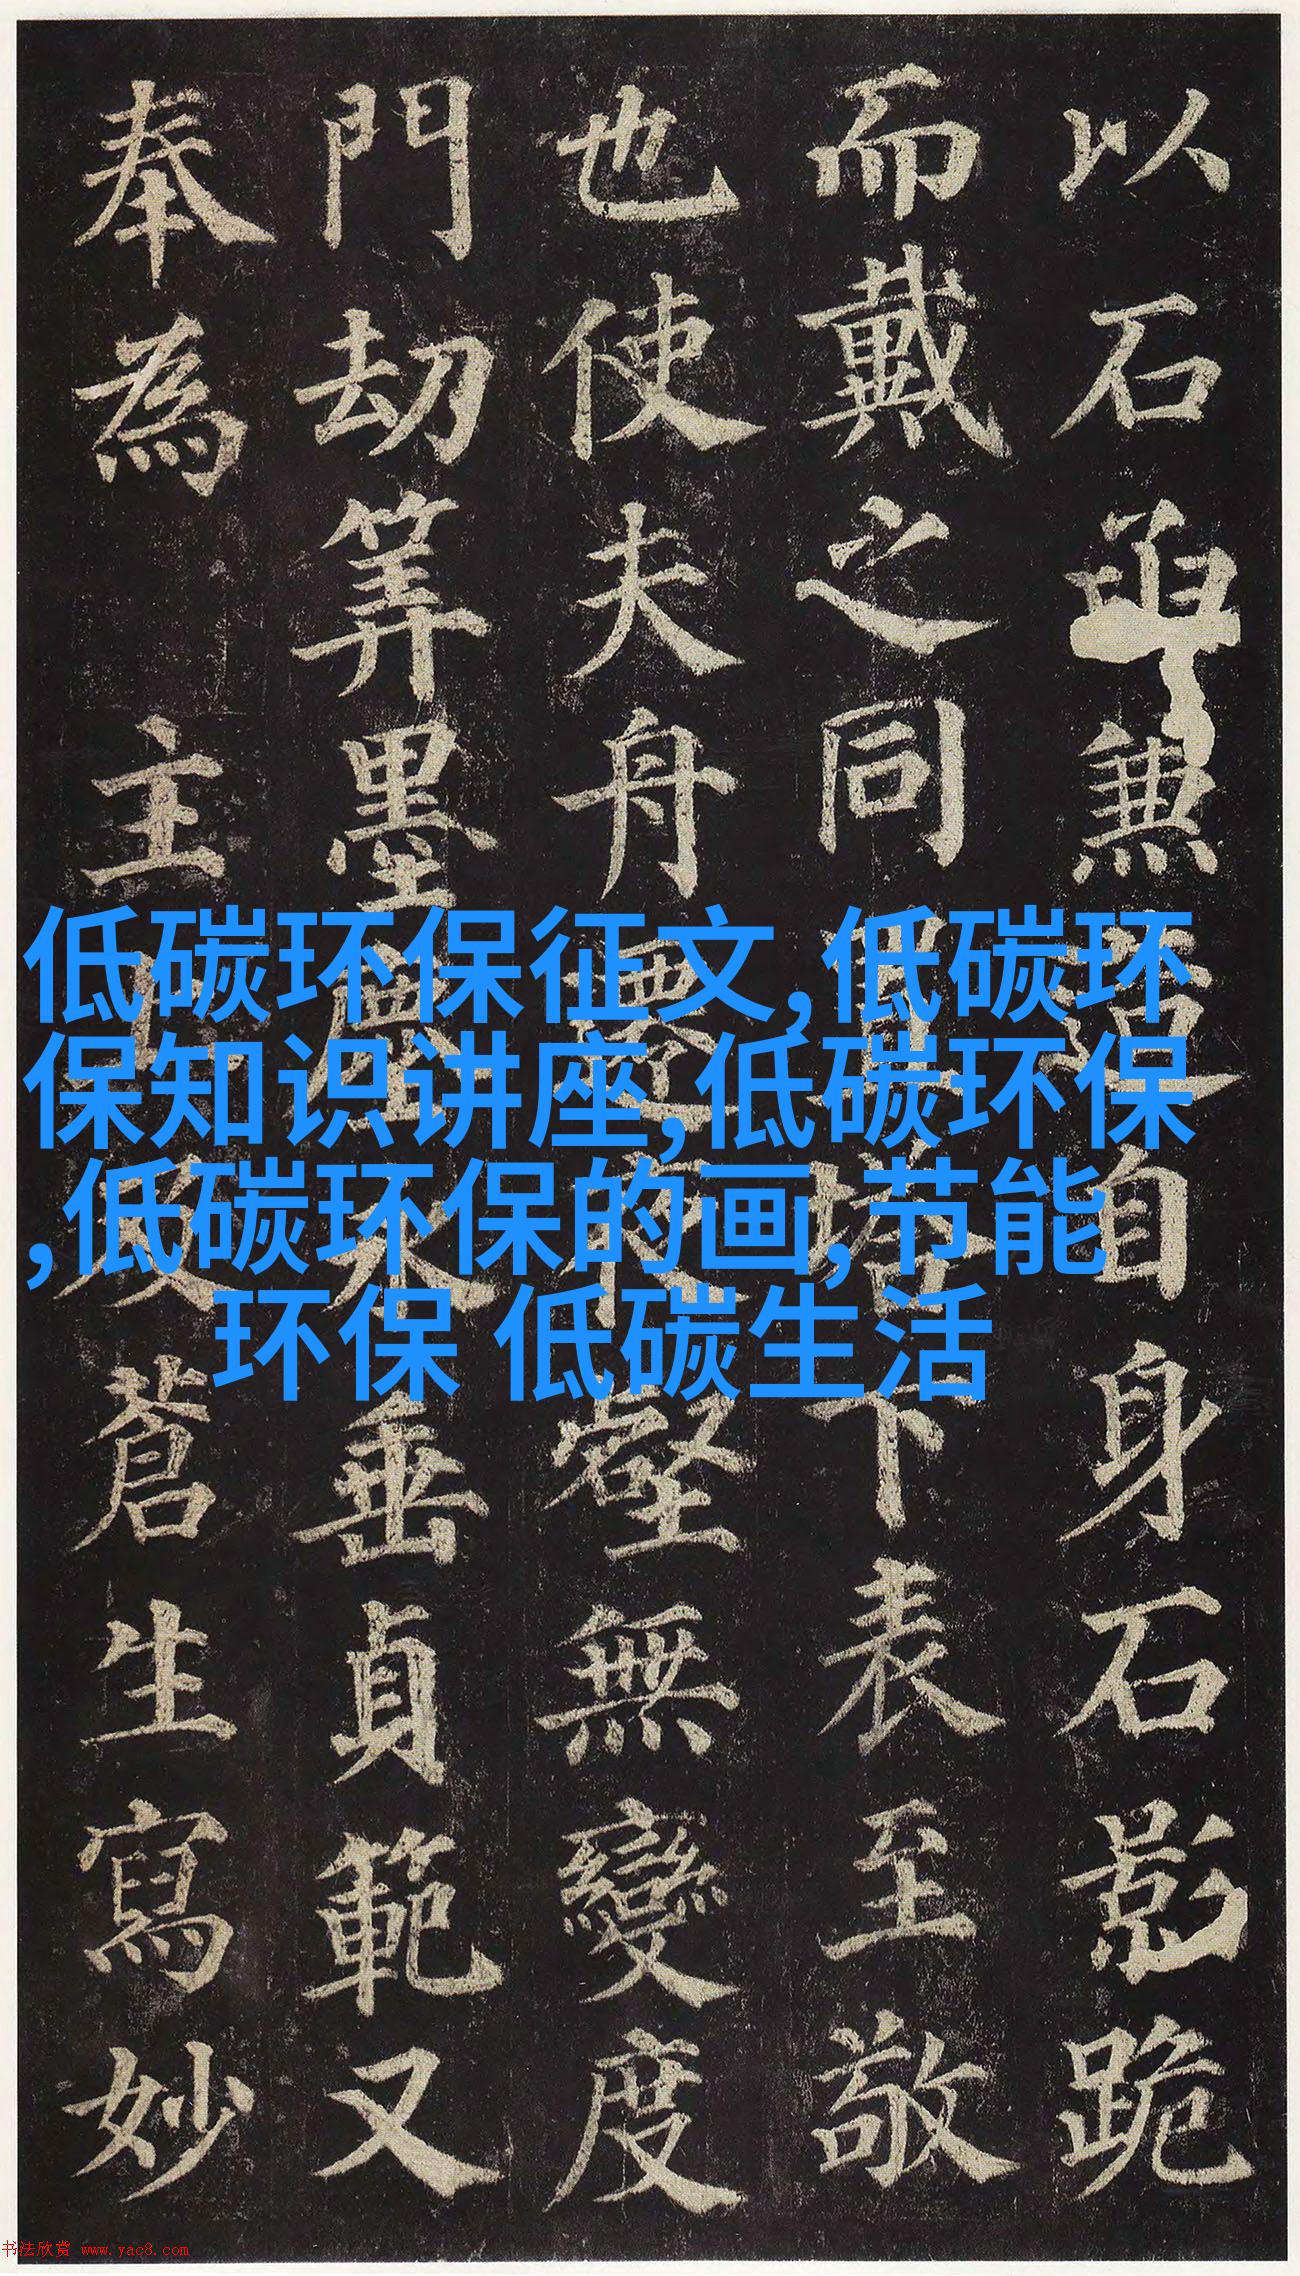 以石函兼造自身石影跪
而戴之同置塔下表至敬
也使夫舟遷夜壑無變度
門劫筭墨塵永垂貞範又
奉為 主上及蒼生寫妙
低碳环保征文,低碳环
保知识讲座,低碳环保
,低碳环保的画,节能
环保 低碳生活
书法欣赏 www.yac8.com